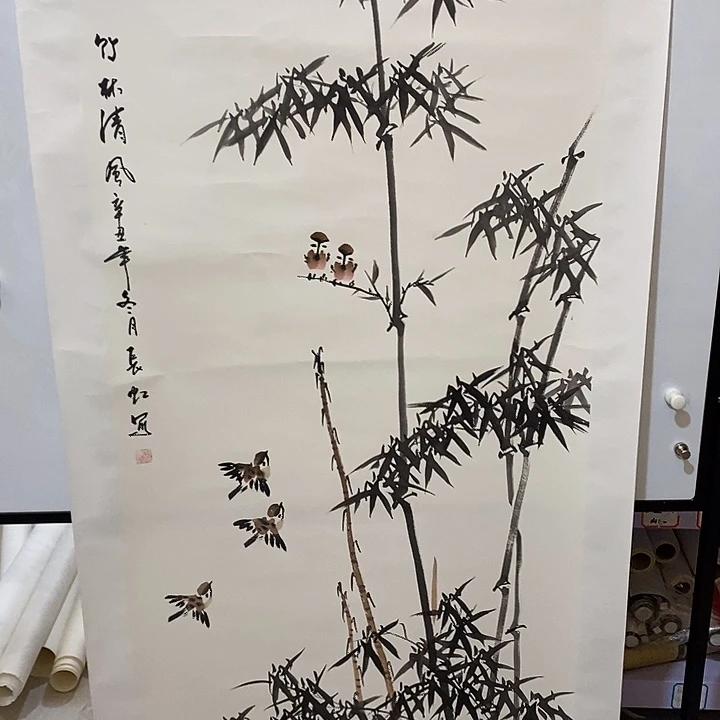 竹林清风辛丑年冬月長虹写